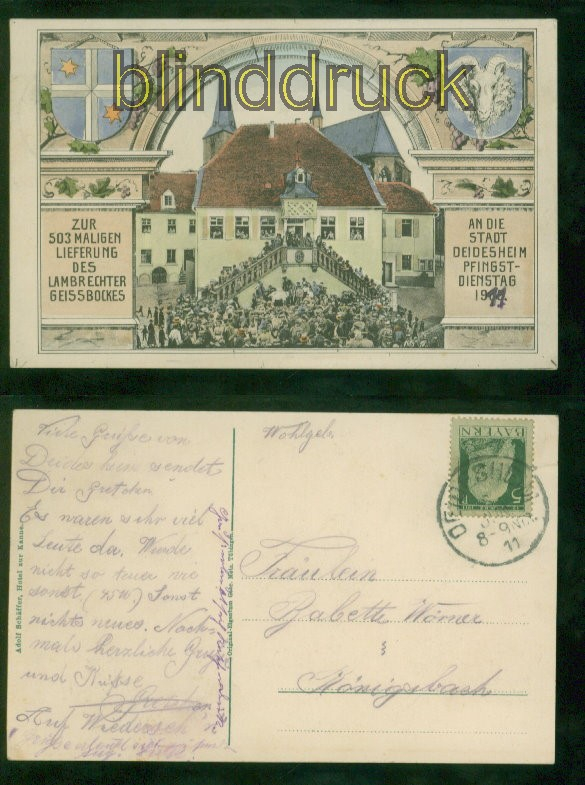 blinddruck
ZUR
503 MALIGEN
LIEFERUNG
DES
LAMBRECHTER
GEISSBOCKES
AN DIE
STADT
DEIDESHEIM
PFINGST-
DIENSTAG
Viele Grüße von
Deidesheim sendet
Dir Gretchen
Es waren sehr viel
Leute da. Wurde
nicht so teuer wie
sonst
Sonst
nichts neues. Noch
mals herzliche
und Küsse
Auf
Adolf Schäffer, Hotel zur Kanne.
Original-Eigentum Gebr. Metz, Tübingen.
Wohlgeb.
BAYERN
5
8-9
11
Fräulein
Babette Wörner
Königsbach